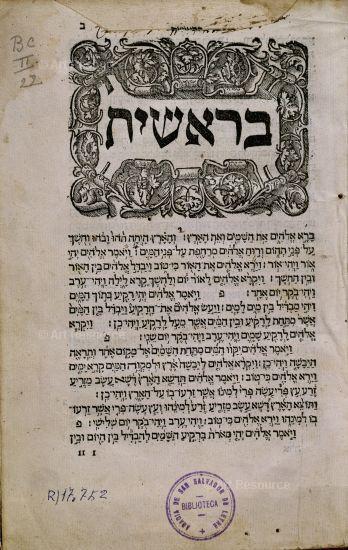 ב
BC
II
22
בראשית
ברא אלהים את השמים ואת הארץ: והארץ היתה תהו ובהו וחשך
על פני תהום ורוח אלהים מרחפת על פני המים: ויאמר אלהים יהי
אור ויהי אור: וירא אלהים את האור כי טוב ויבדל אלהים בין האור
ובין החשך: ויקרא אלהים לאור יום ולחשך קרא לילה ויהי ערב
ויהי בקר יום אחד: פ ויאמר אלהים יהי רקיע בתוך המים
ויהי מבדיל בין מים למים: ויעש אלהים את הרקיע ויבדל בין המים
אשר מתחת לרקיע ובין המים אשר מעל לרקיע ויהי כן: ויקרא
אלהים לרקיע שמים ויהי ערב ויהי בקר יום שני: פ
ויאמר אלהים יקוו המים מתחת השמים אל מקום אחד ותראה
היבשה ויהי כן: ויקרא אלהים ליבשה ארץ ולמקוה המים קרא ימים
וירא אלהים כי טוב: ויאמר אלהים תדשא הארץ דשא עשב מזריע
זרע עץ פרי עשה פרי למינו אשר זרעו בו על הארץ ויהי כן:
ותוצא הארץ דשא עשב מזריע זרע למינהו ועץ עשה פרי אשר זרעו
בו למינהו וירא אלהים כי טוב: ויהי ערב ויהי בקר יום שלישי: פ
ויאמר אלהים יהי מארת ברקיע השמים להבדיל בין היום ובין
II I
R) 17.752
ABADIA DE SAN SALVADOR DE LEYRE
BIBLIOTECA
Art Resource